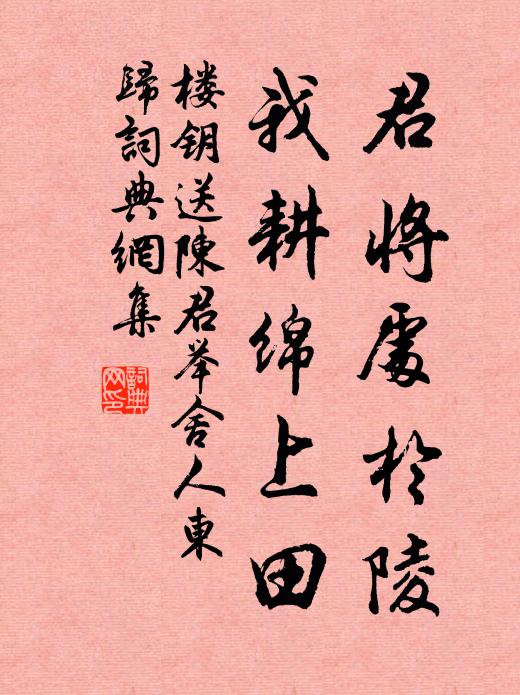 君将處於陵
我耕绵上田
楼钥送陳君举舍人東
歸詞典網集
詞典
网印